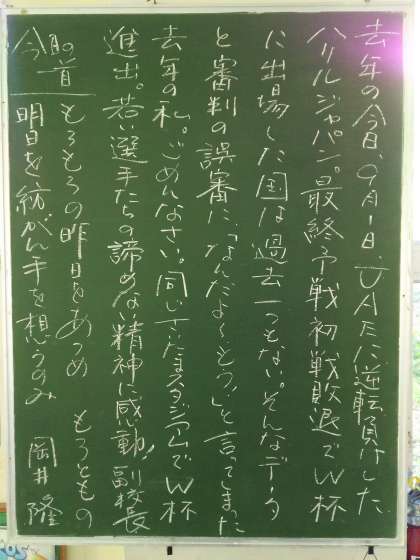 去年の今日、9月1日、UAEに逆転負けした
ハリルジャパン。最終予戦初戦敗退でW杯
に出場した国は過去一つもない。そんなデータ
と審判の誤審に、「なんだよ〜もう」と言ってました
去年の私。ごめんなさい。同じさいたまスタジアムでW杯
進出。若い選手たちの諦めない精神に感動! 副校長
今日の一首
もろもろの昨日をあつめ もろともの
明日を紡がん手を想うのみ 岡井隆